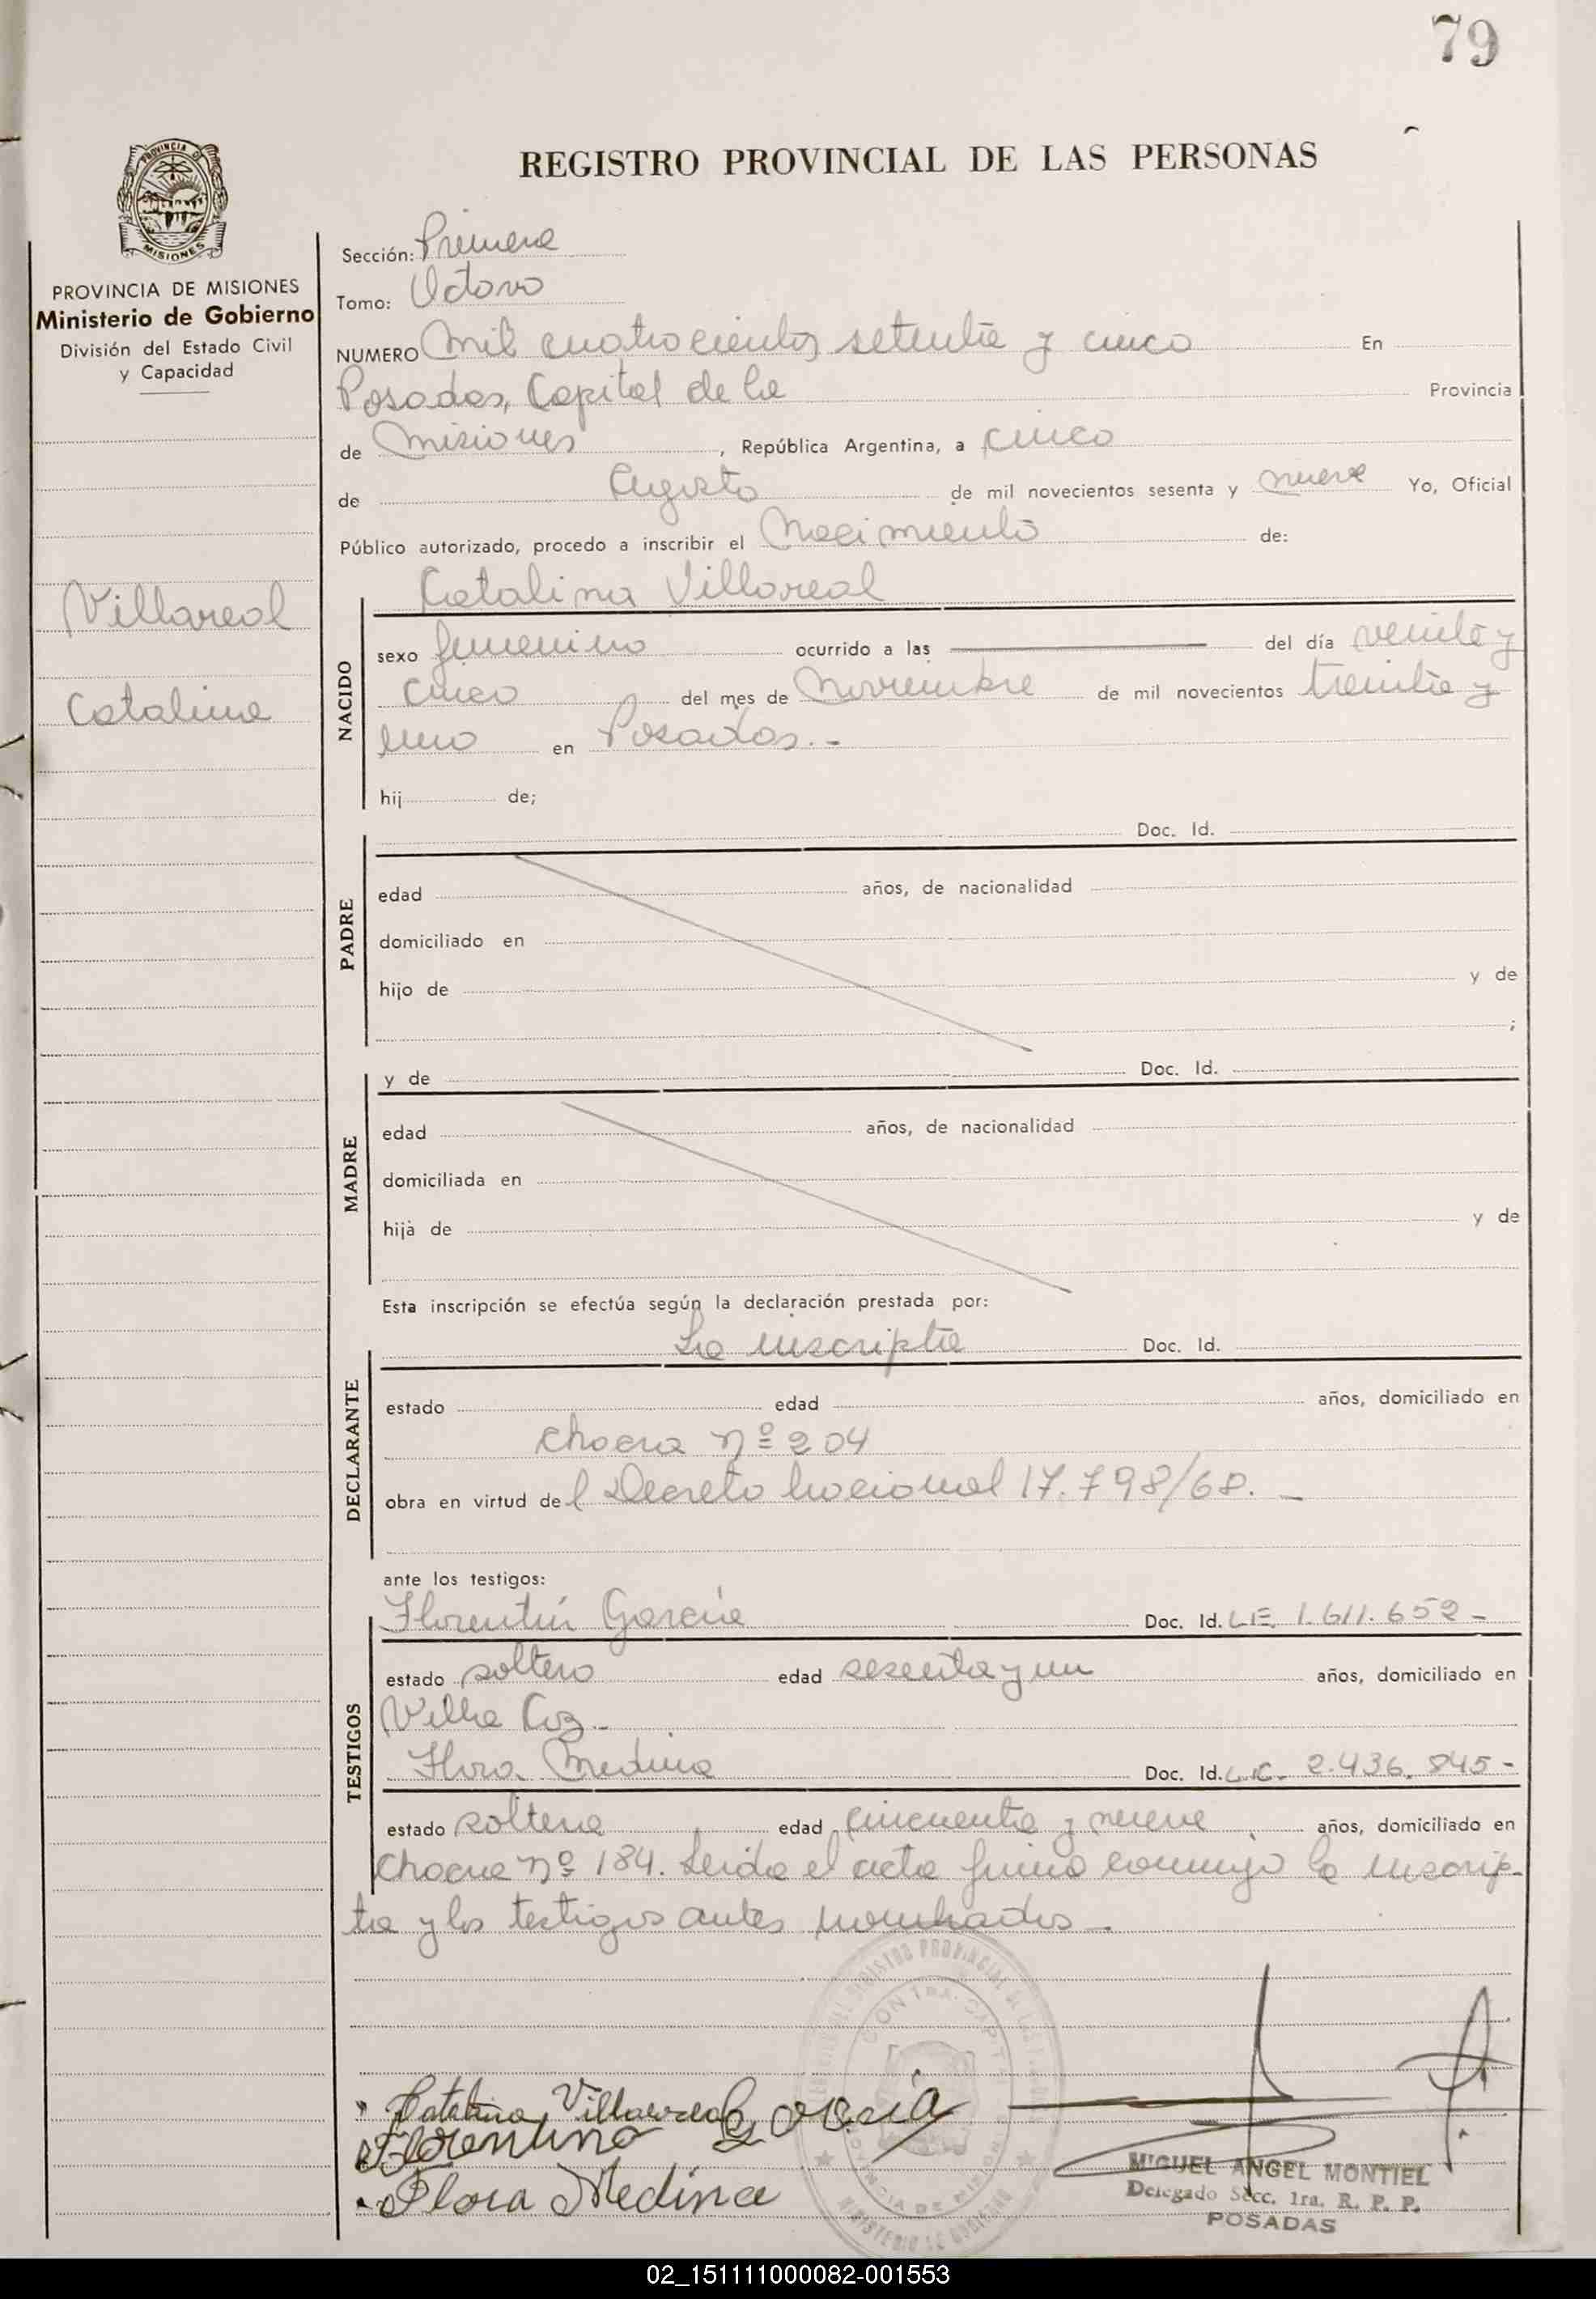 79
REGISTRO PROVINCIAL DE LAS PERSONAS
PROVINCIA DE MISIONES
Ministerio de Gobierno
División del Estado Civil
y Capacidad
Villareal
Catalina
Sección: Primera
Tomo: Octavo
NUMERO Mil cuatrocientos setenta y cinco En
Posadas, Capital de la Provincia
de Misiones, República Argentina, a cinco
de Agosto de mil novecientos sesenta y nueve Yo, Oficial
Público autorizado, procedo a inscribir el Nacimiento de:
Catalina Villareal
NACIDO
sexo femenino ocurrido a las del día veinte y
cinco del mes de Noviembre de mil novecientos treinta y
uno en Posadas.-
hij de;
Doc. Id.
PADRE
edad años, de nacionalidad
domiciliado en
hijo de y de
;
MADRE
y de Doc. Id.
edad años, de nacionalidad
domiciliada en
hija de y de
Esta inscripción se efectúa según la declaración prestada por:
La inscripta Doc. Id.
DECLARANTE
estado edad años, domiciliado en
Chacra Nº 204
obra en virtud del Decreto Nacional 17.798/68.-
ante los testigos:
Florentín García Doc. Id. L.E. 1.611.652-
TESTIGOS
estado soltero edad sesenta y un años, domiciliado en
Villa Cuz.-
Flora Medina Doc. Id. L.C. 2.436.845-
estado soltera edad cincuenta y nueve años, domiciliado en
Chacra Nº 184. Leida el acta firma conmigo la inscrip-
ta y los testigos antes nombrados.-
Catalina Villarreal
Florentino Garcia
Flora Medina
MIGUEL ANGEL MONTIEL
Delegado Secc. 1ra. R. P. P.
POSADAS
02_151111000082-001553